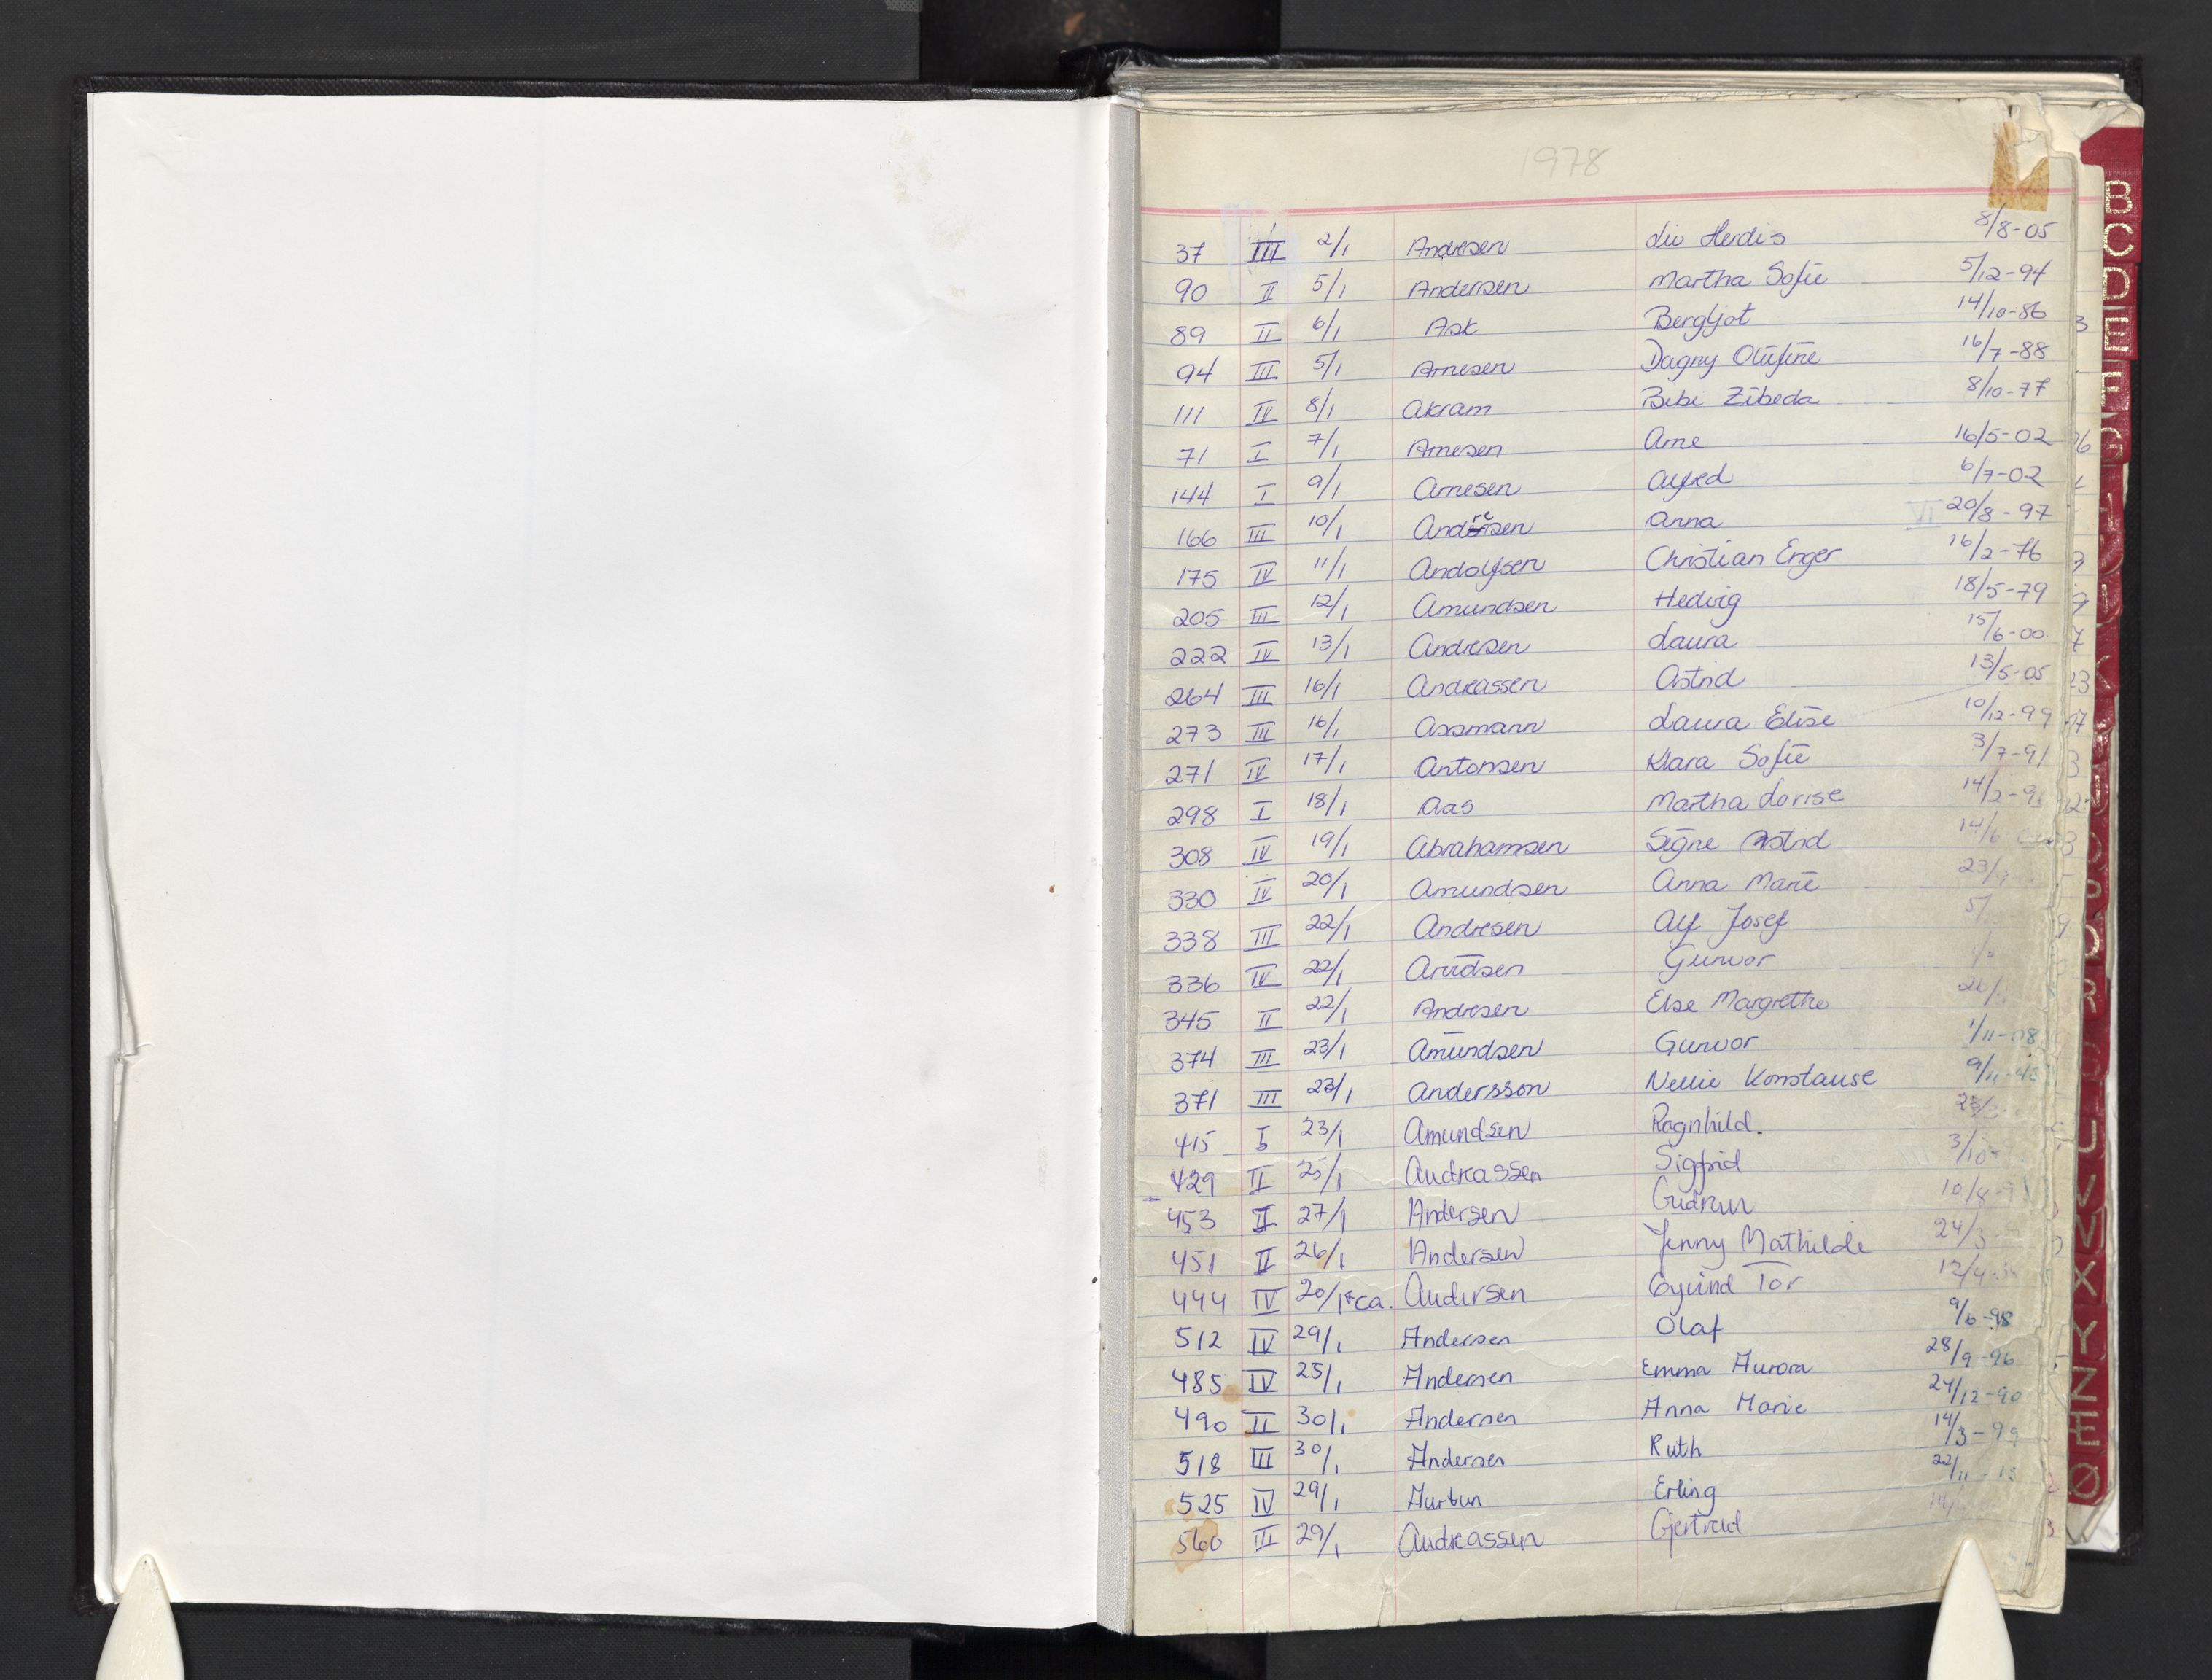 1978
37 III 2/1 Andresen Liv Herdis 8/8-05
90 II 5/1 Andersen Martha Sofie 5/12-94
89 II 6/1 Ask Bergljot 14/10-86
94 III 5/1 Arnesen Dagny Olufine 16/7-88
111 IV 8/1 Akram Bibi Zibeda 8/10-77
71 I 7/1 Arnesen Arne 16/5-02
144 I 9/1 Arnesen Alfred 6/7-02
166 III 10/1 Andresen Anna 20/8-97
175 IV 11/1 Andolfsen Christian Enger 16/2-76
205 III 12/1 Amundsen Hedvig 18/5-79
222 IV 13/1 Andresen Laura 15/6-00
264 III 16/1 Andreassen Astrid 13/5-05
273 III 16/1 Assmann Laura Elise 10/12-99
271 IV 17/1 Antonsen Klara Sofie 3/7-91
298 I 18/1 Aas Martha Lovise 14/2-
308 IV 19/1 Abrahamsen Signe Astrid 14/6
330 IV 20/1 Amundsen Anna Marie 23/
338 III 22/1 Andresen Alf Josef 5/
336 IV 22/1 Arvidsen Gunvor
345 II 22/1 Andresen Else Margrethe 26/
374 III 23/1 Amundsen Gunvor 1/11-08
371 III 23/1 Andersson Nellie Konstanse 9/11-
415 I 23/1 Amundsen Ragnhild.
429 II 25/1 Andreassen Sigfrid 3/10-
453 II 27/1 Andersen Gudrun 10/8-
451 II 26/1 Andersen Jenny Mathilde 24/3
444 IV 20/1 ca. Andersen Øyvind Tor 12/4-
512 IV 29/1 Andersen Olaf 9/6-98
485 IV 25/1 Andersen Emma Aurora 28/9-96
490 II 30/1 Andersen Anna Marie 24/12-90
518 III 30/1 Andersen Ruth 14/3-99
525 IV 29/1 Erling 22/11-
560 II 29/1 Andreassen Gjertrud 14/
B
C
D
E
F
G
K
R
U
V
W
X
Y
Z
Æ
Ø